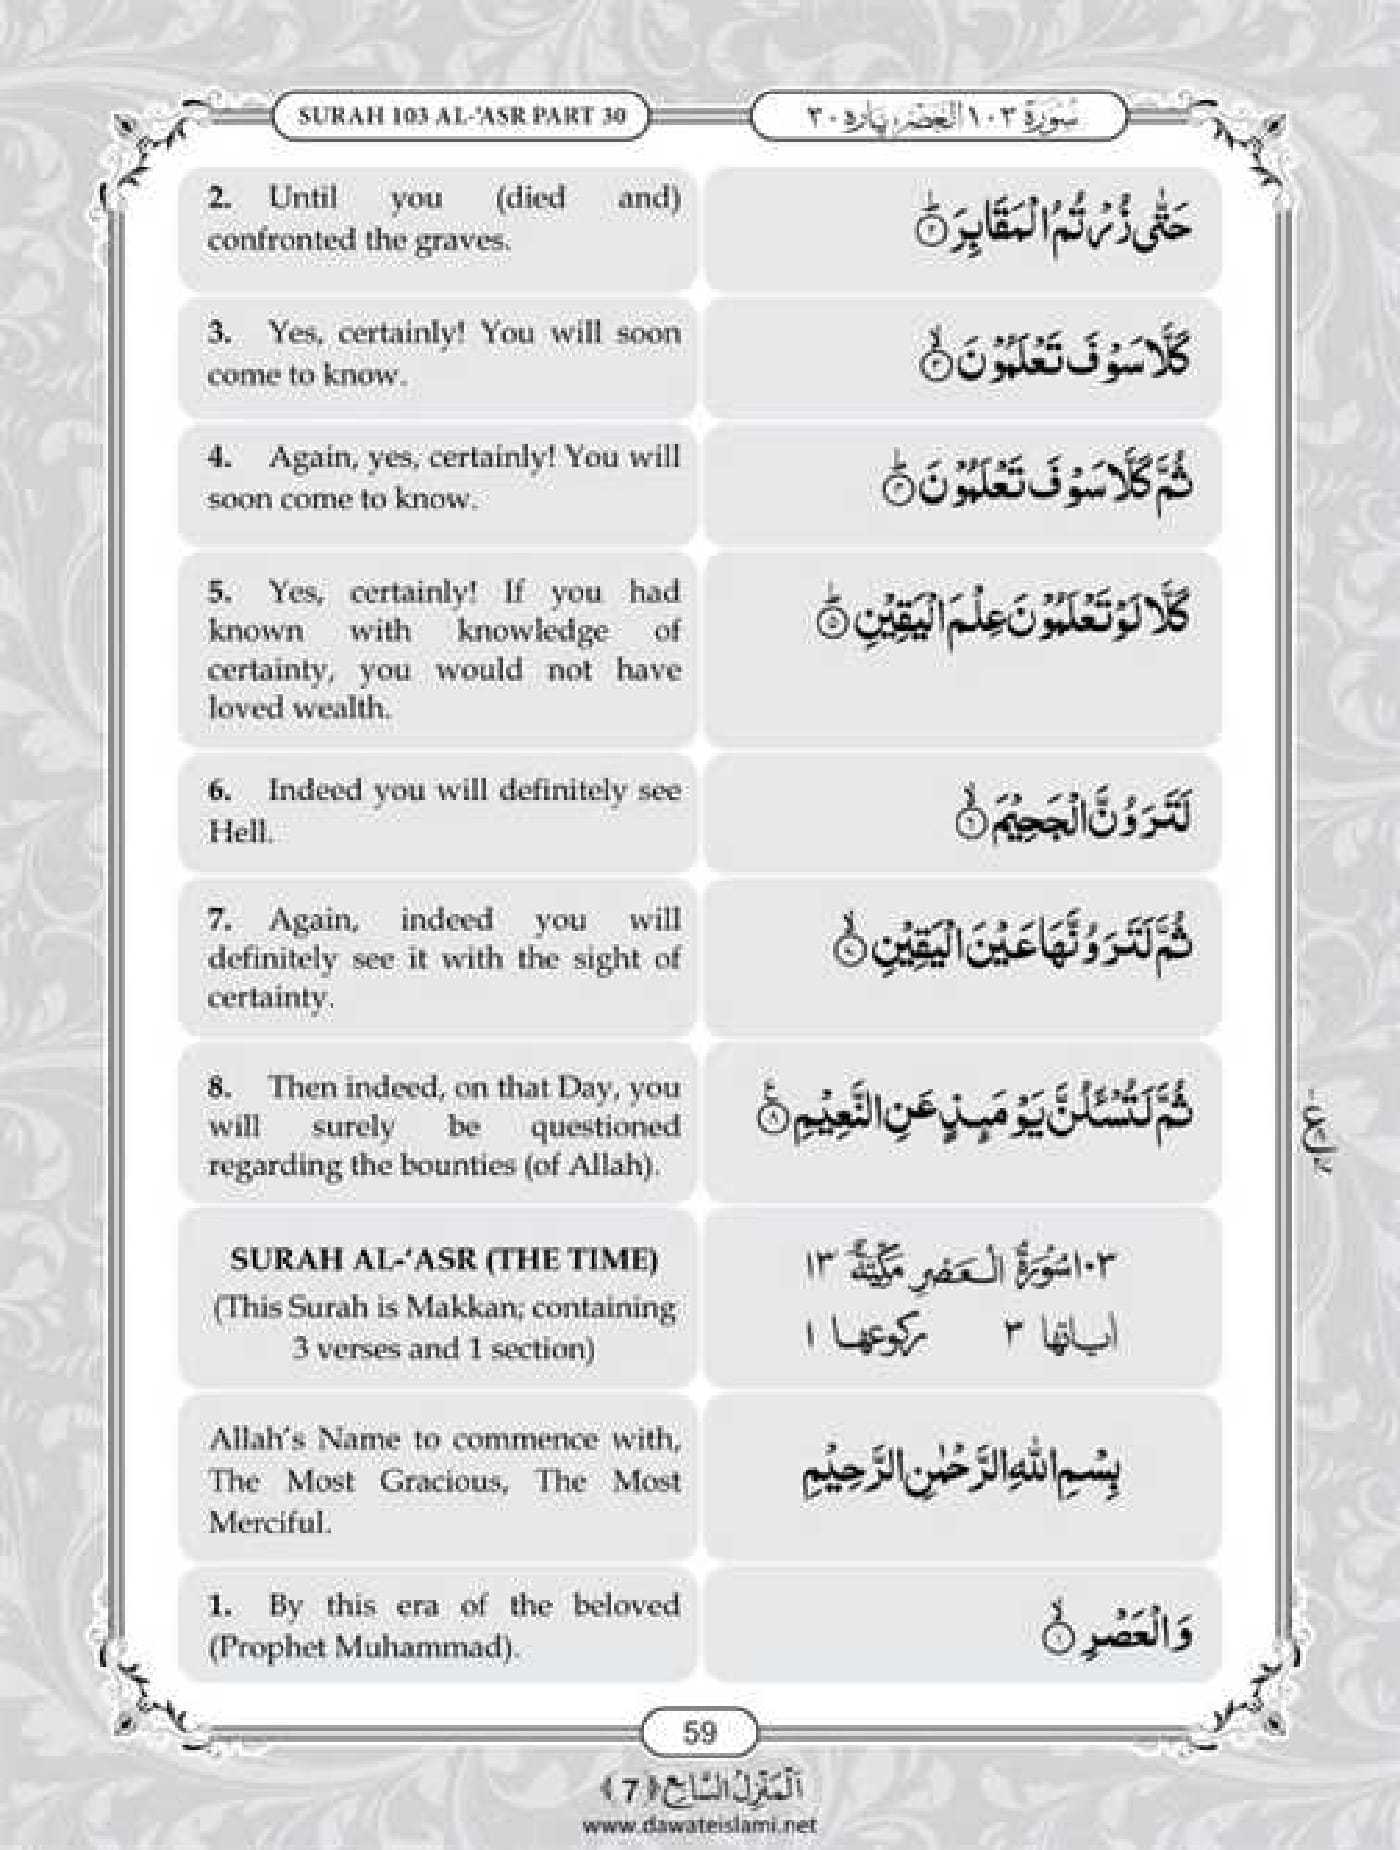 SURAH 103 AL-‘ASR PART 30
سُوْرَةُ ١٠٣ الْعَصْرِ، پَارہ ٣٠
2. Until you (died and)
confronted the graves.
حَتّٰى زُرْتُمُ الْمَقَابِرَؕ ۝٢
3. Yes, certainly! You will soon
come to know.
كَلَّا سَوْفَ تَعْلَمُوْنَۙ ۝٣
4. Again, yes, certainly! You will
soon come to know.
ثُمَّ كَلَّا سَوْفَ تَعْلَمُوْنَؕ ۝٤
5. Yes, certainly! If you had
known with knowledge of
certainty, you would not have
loved wealth.
كَلَّا لَوْ تَعْلَمُوْنَ عِلْمَ الْيَقِيْنِؕ ۝٥
6. Indeed you will definitely see
Hell.
لَتَرَوُنَّ الْجَحِيْمَۙ ۝٦
7. Again, indeed you will
definitely see it with the sight of
certainty.
ثُمَّ لَتَرَوُنَّهَا عَيْنَ الْيَقِيْنِۙ ۝٧
8. Then indeed, on that Day, you
will surely be questioned
regarding the bounties (of Allah).
ثُمَّ لَتُسْـَٔلُنَّ يَوْمَىِٕذٍ عَنِ النَّعِيْمِ ۝٨
SURAH AL-‘ASR (THE TIME)
(This Surah is Makkan; containing
3 verses and 1 section)
١٠٣ سُوْرَةُ الْعَصْرِ مَكِّيَّةٌ ١٣
اٰیاتها ٣ ركوعها ١
Allah’s Name to commence with,
The Most Gracious, The Most
Merciful.
بِسْمِ اللّٰهِ الرَّحْمٰنِ الرَّحِيْمِ
1. By this era of the beloved
(Prophet Muhammad).
وَالْعَصْرِۙ ۝١
59
اَلْمَنْزِلُ السَّابِع ﴿7﴾
www.dawateislami.net